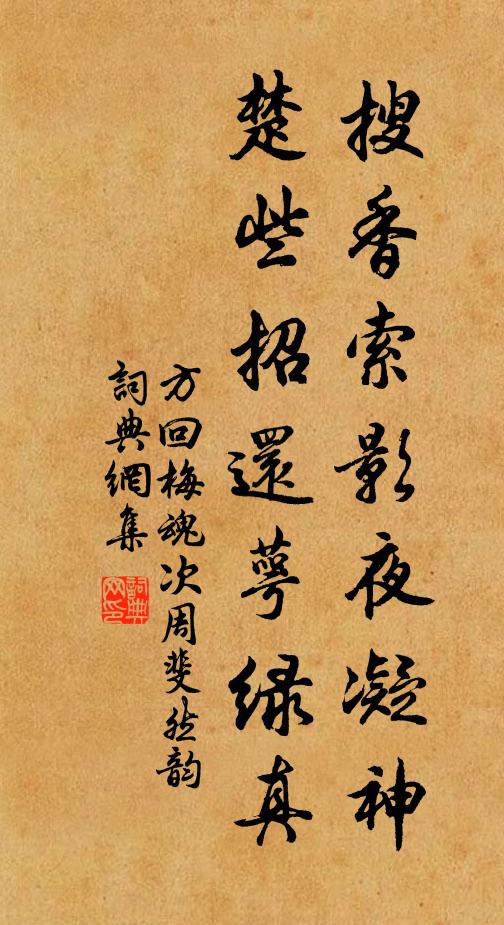 搜香索影夜凝神
楚些招還萼綠真
方回梅魂次周斐然韵
詞典網集
詞典網印